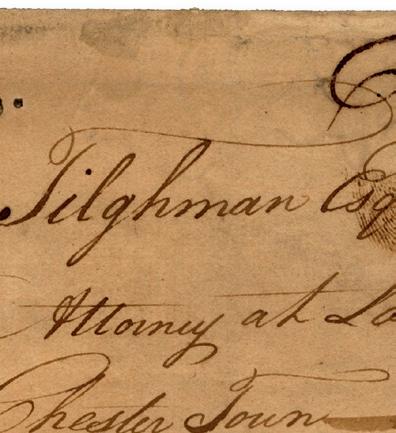 Tilghman Esq
Attorney at La
Chester Town